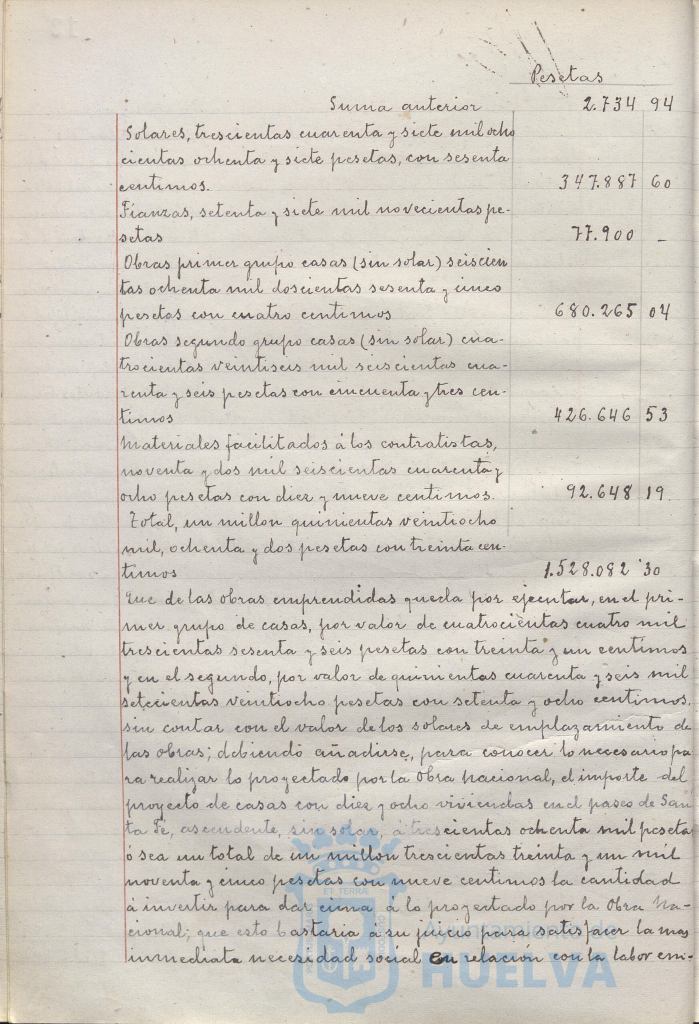 Pesetas
Suma anterior 2.734 94
Solares, trescientas cuarenta y siete mil ocho
cientas ochenta y siete pesetas, con sesenta
centimos. 347.887 60
Fianzas, setenta y siete mil novecientas pe-
setas 77.900 -
Obras primer grupo casas (sin solar) seiscien
tas ochenta mil doscientas sesenta y cinco
pesetas con cuatro centimos 680.265 04
Obras segundo grupo casas (sin solar) cua-
trocientas veintiseis mil seiscientas cua-
renta y seis pesetas con cincuenta y tres cen-
timos 426.646 53
Materiales facilitados á los contratistas,
noventa y dos mil seiscientas cuarenta y
ocho pesetas con diez y nueve centimos. 92.648 19
Total, un millon quinientas veintiocho
mil, ochenta y dos pesetas con treinta cen-
timos 1.528.082 30
Que de las obras emprendidas queda por ejecutar, en el pri-
mer grupo de casas, por valor de cuatrocientas cuatro mil
trescientas sesenta y seis pesetas con treinta y un centimos
y en el segundo, por valor de quinientas cuarenta y seis mil
setecientas veintiocho pesetas con setenta y ocho centimos,
sin contar con el valor de los solares de emplazamiento de
las obras; debiendo añadirse, para conocer lo necesario pa
ra realizar lo proyectado por la Obra Nacional, el importe del
proyecto de casas con diez y ocho viviendas en el paseo de San
ta Fé, ascendente, sin solar, á trescientas ochenta mil peseta
ó sea un total de un millon trescientas treinta y un mil
noventa y cinco pesetas con nueve centimos la cantidad
á invertir para dar cima á lo proyectado por la Obra Na-
cional; que esto bastaria á su juicio para satisfacer la mas
inmediata necesidad social en relación con la labor enci-
ET TERRA
Ayuntamiento de
HUELVA